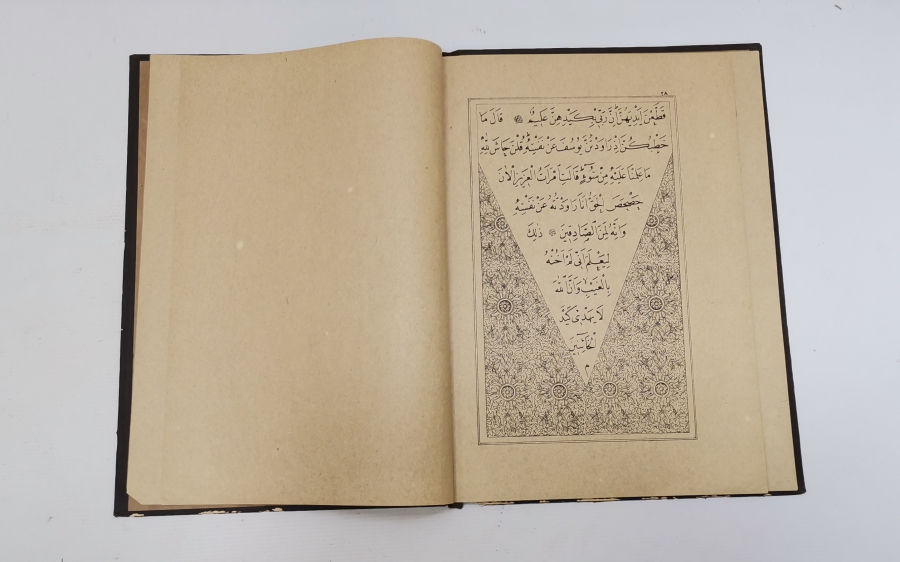 ٢٨
قَطَّعْنَ اَيْدِيَهُنَّ اِنَّ رَبّ۪ي بِكَيْدِهِنَّ عَل۪يمٌ ۞ قَالَ مَا
خَطْبُكُنَّ اِذْ رَاوَدْتُنَّ يُوسُفَ عَنْ نَفْسِه۪ قُلْنَ حَاشَ لِلّٰهِ
مَا عَلِمْنَا عَلَيْهِ مِنْ سُٓوءٍ قَالَتِ امْرَاَتُ الْعَز۪يزِ الْاٰنَ
حَصْحَصَ الْحَقُّ اَنَا۬ رَاوَدْتُهُ عَنْ نَفْسِه۪
وَاِنَّهُ لَمِنَ الصَّادِق۪ينَ ۞ ذٰلِكَ
لِيَعْلَمَ اَنّ۪ي لَمْ اَخُنْهُ
بِالْغَيْبِ وَاَنَّ اللّٰهَ
لَا يَهْد۪ي كَيْدَ
الْخَٓائِن۪ينَ
م